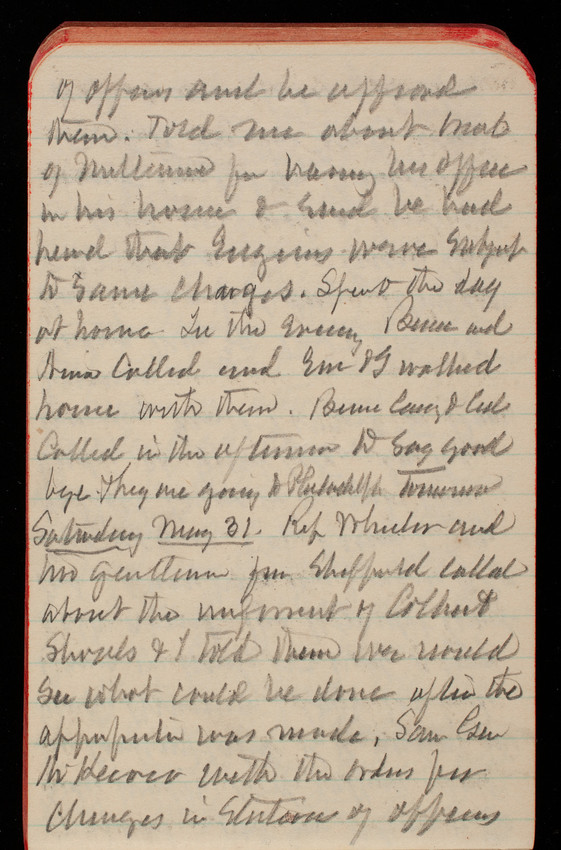 of officers and he approved
them. Told me about that
of for having his office
in his house & said he had
heard that Engineers were subject
to same charges. Spent the day
at home In the evening and
Called and Em & G walked
home with them. Casey &
Called in the afternoon to say good
bye. They are going to Philadelphia tomorrow
Saturday May 31. Rep Wheeler and
two gentlemen from Sheffield called
about the improvement of Colbert
Shoals & I told them we would
see what could be done after the
appropriation was made. Saw Gen
with the orders for
changes in Stations of officers